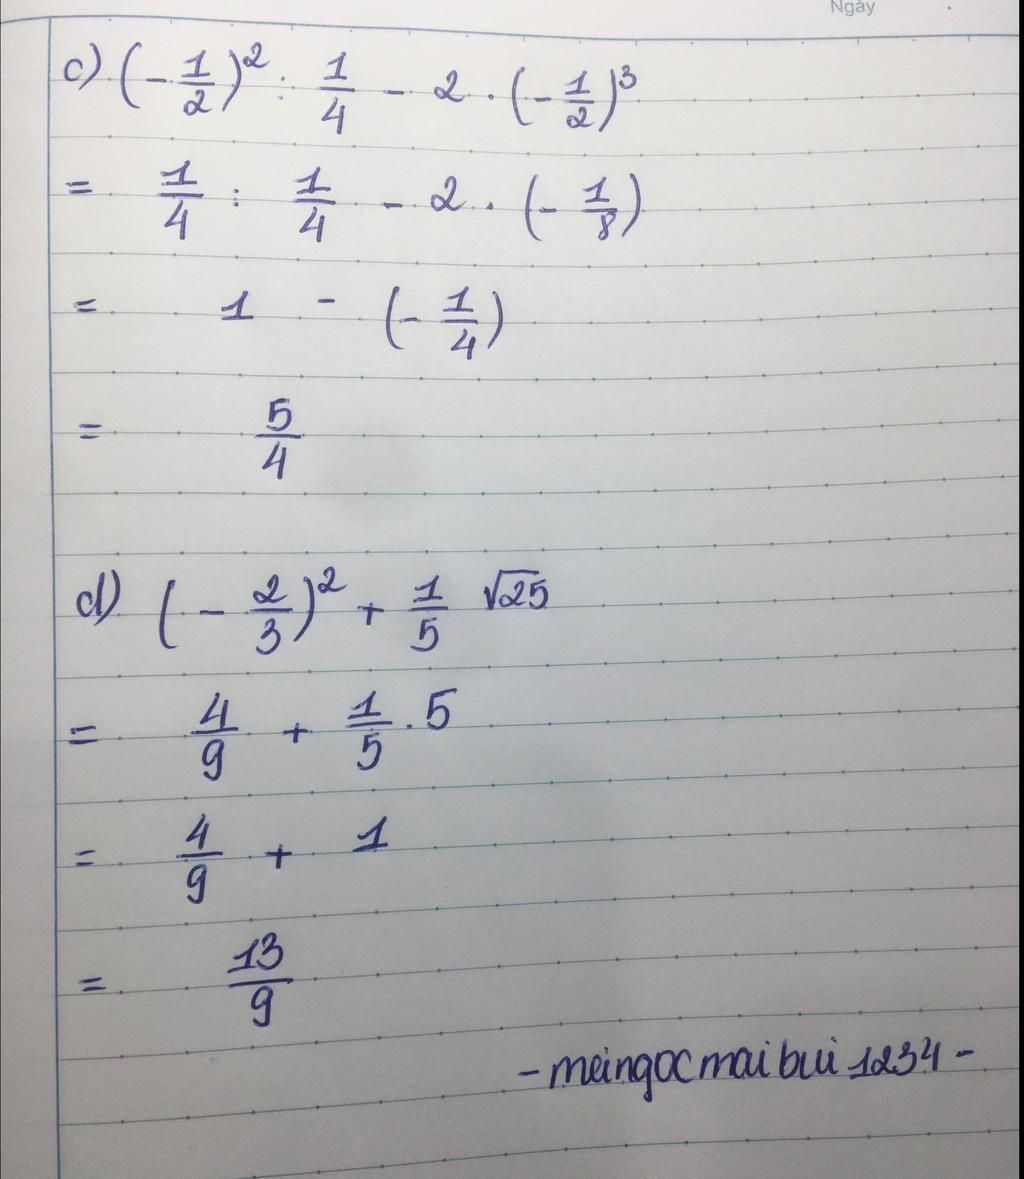 Ngày
c) (-1/2)² : 1/4 - 2 . (-1/2)³
= 1/4 : 1/4 - 2 . (-1/8)
= 1 - (-1/4)
= 5/4
d) (-2/3)² + 1/5 √25
= 4/9 + 1/5 . 5
= 4/9 + 1
= 13/9
- meingocmaibui1234 -